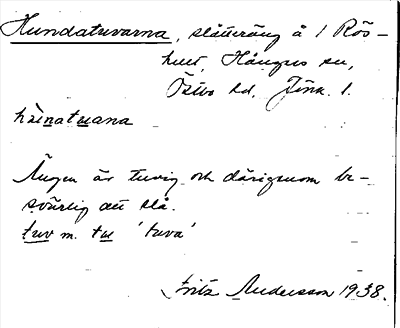 Hundatuvarna, slåtteräng å 1 Rös-
hult, Hånger sn,
Östbo hd, Jönk. l.
hùnatuana
Ängen är tuvig och därigenom be-
svärlig att slå.
tuv m. tu 'tuva'
Fritz Andersson 1938.